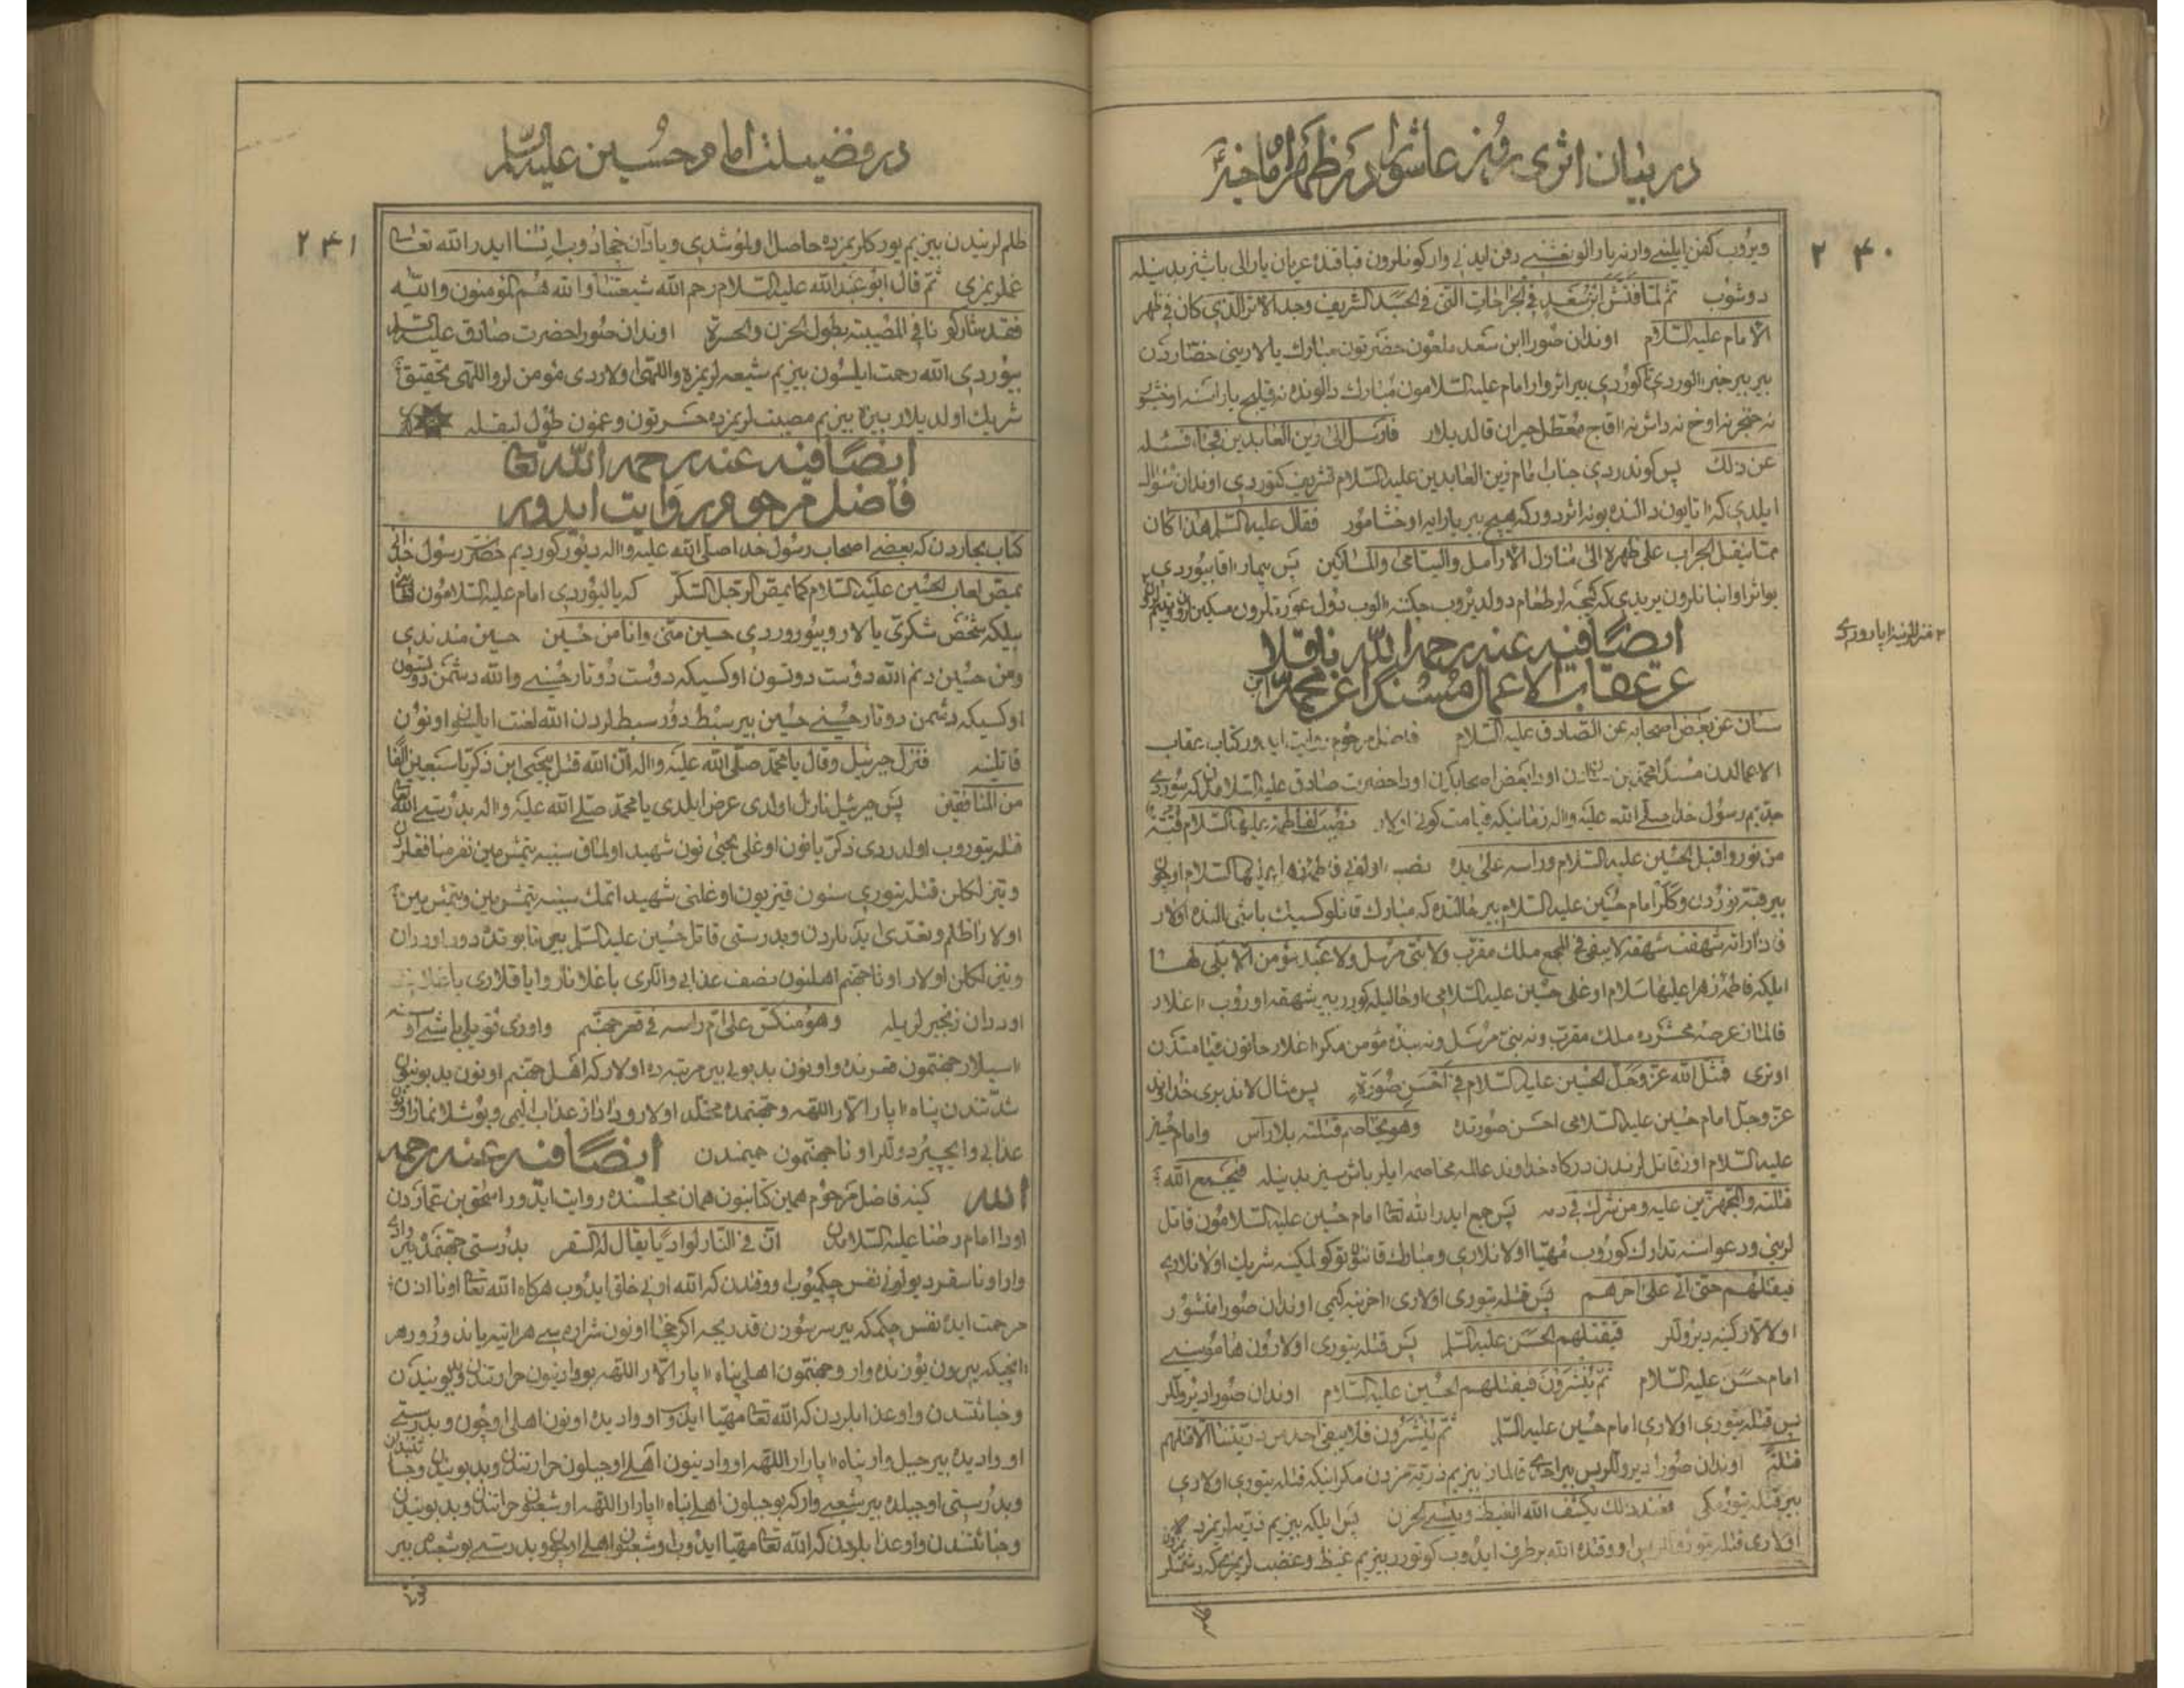 در بیان اثری روز عاشورا در ظهر امام
۲۴۰
ویروب کفن ایلینی وار نه یارالو نعشنی دفن ایدنی وار کونلرون قباقنده عریان یارالی باشیز بدنیله
دوشوب ثم لما فتش ابن سعد فی الجراحات التی فی الجسد الشریف وجد الاثر الذی کان فی ظهر
الامام علیه السلام اوندان صورا ابن سعد ملعون حضرتون مبارک یالارینی حضاردن
بیر بیر خبر الوردی کوردی بیر اثر وار امام علیه السلامون مبارک دالونده نه قیلیج یاراسنه اوخشیر
نه خنجر نه اوخ نه داش نه اقاج معطل حیران قالدیلار فارسل الی زین العابدین فجاء فسئله
عن ذلک پس کوندردی جناب امام زین العابدین علیه السلام تشریف کتوردی اوندان سؤال
ایلدی که اتایون دالنده بو نه اثردور که هیچ بیر یارایه اوخشامور فقال علیه السلام هذا کان
مما ینقل الجراب علی ظهره الی منازل الارامل والیتامی والمساکین پس بیمار اقا بیوردی
بو اثر اوانبانلرون یریدی که کیجه لر طعام دولدیروب چکنه الوب دول عورتلرون مسکینلرون یتیم
منزللرینه اپاروردی
ایضا فیه عنه رحمه الله ناقلا
عن عقاب الاعمال مسندا عن محمد ابن
سنان عن بعض اصحابه عن الصادق علیه السلام فاضل مرحوم روایت ایدور کتاب عقاب
الاعمالدن مسندا محمد بن سنان دن اودا بعض اصحابدن اودا حضرت صادق علیه السلامدن که بیوردی
جدیم رسول خدا صلی الله علیه واله زمانیکه قیامت کونی اولار نصب لفاطمة علیها السلام قبة
من نور واقبل الحسین علیه السلام وراسه علی یده نصب اولونی فاطمه زهرا علیها السلام اوچون
بیر قبه نوردن وکلر امام حسین علیه السلام بیر حالنده که مبارک قانلو کسیک باشی النده اولار
فاذا راته شهقت شهقة لا یبقی فی الجمع ملک مقرب ولا نبی مرسل ولا عبد مؤمن الا بکی لها
ایلیکه فاطمه زهرا علیها سلام اوغلی حسین علیه السلامی اوحالیله کورر بیر شهقه اوروب اغلار
قالماز عرصه محشرده ملک مقرب ونه نبی مرسل ونه بنده مؤمن مکر اغلار خاتون قیامتدن
اوتری فمثل الله عز وجل الحسین علیه السلام فی احسن صورة پس مثال لاندیری خداوند
عز وجل امام حسین علیه السلامی احسن صورتده وهو یخاصم قتلته بلا راس وامام حسین
علیه السلام اوز قاتل لرندن درکاه خداوند عالمه مخاصمه ایلر باش سیز بدنیله فیجمع الله
قتلته والمجهزین علیه ومن شرک فی دمه پس جمع ایدر الله تعالی امام حسین علیه السلامون قاتل
لرینی ودعواسنه تدارک کوروب مهیا اولانلاری ومبارک قانون توکولمکینه شریک اولانلاری
فیقتلهم حتی اتی علی اخرهم پس قتله یتوری اولاری اخرینه کیمی اوندان صورا منشور
اولالار کینه دیرولر فیقتلهم الحسن علیه السلام پس قتله یتوری اولارون هاموسینی
امام حسن علیه السلام ثم ینشرون فیقتلهم الحسین علیه السلام اوندان صورا دیرولر
پس قتله یتوری اولاری امام حسین علیه السلام ثم ینشرون فلا یبقی احد من ذریتنا الا قتلهم
قتلة اوندان صورا دیرولر پس بیر احدی قالماز بیزیم ذریه مزدن مکر اینکه قتله یتوری اولاری
بیر قتله یتورمکی فعند ذلک یکشف الله الغیظ وینسی الحزن پس ایلیکه بیزیم ذریه لریمزده
اولاری قتله اووقتده الله برطرف ایدوب کوتورر بیزیم غیظ وغضب لریمزی که دشمنلر
در فضیلت امام حسین علیه السلام
۲۴۱
ظلم لریندن بیزیم یورکلریمزده حاصل اولوشدی ویادان چخادوب انسا ایدر الله تعالی
غملریمزی ثم قال ابو عبد الله علیه السلام رحم الله شیعتنا والله هم المؤمنون والله
فقد شارکونا فی المصیبة بطول الحزن والحسرة اوندان صورا حضرت صادق علیه السلام
بیوردی الله رحمت ایلسون بیزیم شیعه لریمزه واللهی اولاردی مؤمن لر واللهی تحقیق
شریک اولدیلار بیزه بیزیم مصیبت لریمزده حسرتون وغمون طول لیقیله
ایضا فیه عنه رحمه الله تعالی
فاضل مرحوم روایت ایدور
کتاب بحاردن که بعضی اصحاب رسول خدا صلی الله علیه واله دیور کوردیم حضرت رسول خدانی
یمص لعاب الحسین علیه السلام کما یمص الرجل السکر که یالیوردی امام علیه السلامون
بیلکه شخص شکری یالار وبیوروردی حسین منی وانا من حسین حسین مندندی
ومن حسین دنم الله دوست دوتسون اوکسیکه دوست دوتار حسینی والله دشمن دوتسون
اوکسیکه دشمن دوتار حسینی حسین بیر سبط دور سبط لردن الله لعنت ایلسون اونون
قاتلینه فنزل جبرئیل وقال یا محمد صلی الله علیه واله ان الله قتل بیحیی ابن زکریا سبعین الفا
من المنافقین پس جبرئیل نازل اولدی عرض ایلدی یا محمد صلی الله علیه واله بدرستی الله
قتله یتوروب اولدردی زکریانون اوغلی یحیی نون شهید اولماق سببنه یتمش مین نفر منافقلردن
وتیز لکلن قتله یتوری سنون قیزیون اوغلنی شهید اتمک سببنه یتمش مین ویتمش مین
اولار ظلم وتعدی ایدنلردن وبدرستی قاتل حسین علیه السلام بیر تابوتده دور اوددان
وتیز لکلن اولار اونا جهنم اهلنون نصف عذابی والکری باغلانار وایاقلاری
اوددان زنجیر لریله وهو منکس علی ام راسه فی قعر جهنم واودی تویلی باشی اوسته
اسیلار جهنمون قعرنده واونون بدبوئی بیر مرتبه ده اولار که اهل جهنم اونون بدبوئنون
شدتندن پناه اپارالار اللهه وجهنمده مخلد اولار
عذابی وایچیردولر اونا جهنمون حمیمندن ایضا فیه عنه رحمه
الله کینه فاضل مرحوم همین کتابون همان مجلسنده روایت ایدور اسحق بن عماردن
اودا امام رضا علیه السلامدن ان فی النار لوادیا یقال له السقر بدرستی جهنمده بیر وادی
وار اونا سقر دیولر نفس چکمیوب اووقتدن که الله اونی خلق ایدوب هرکاه الله تعالی اونا اذن
مرحمت ایده نفس چکمکه بیر سوزن قدریجه اکر چخا اونون شراره سی هر اینه یاندورور هر
انچیکه یرون یوزنده وار وجهنمون اهلی پناه اپارالار اللهه بو وادینون حرارتندن وبدبوئیندن
وخباثتندن واوعذابلردن که الله تعالی مهیا ایدوب او وادیده اونون اهلی اوچون وبدرستی
او وادیده بیر جبل وار پناه اپارالار اللهه او وادینون اهلی اوجبلون حرارتندن وبدبوئیندن وخباثتندن
وبدرستی اوجبلده بیر شعبی وار که بو جبلون اهلی پناه اپارالار اللهه اوشعبون حرارتندن وبدبوئیندن
وخباثتندن واوعذابلردن که الله تعالی مهیا ایدوب اوشعبون اهلی اوچون وبدرستی بو شعبده بیر